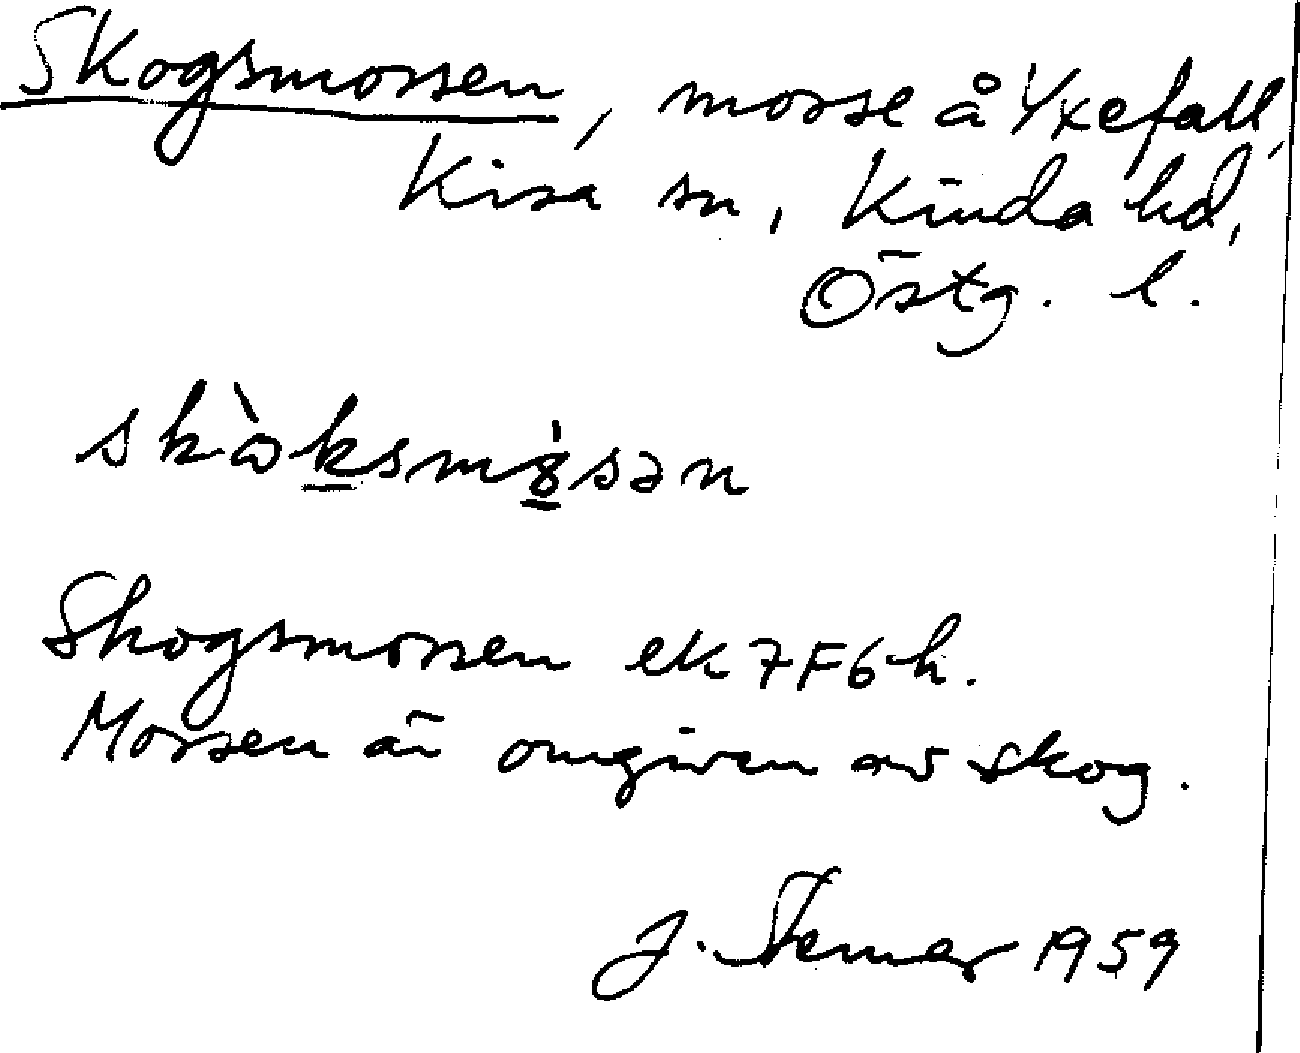 Skogsmossen, mosse å Yxefall,
Kisa sn, Kinda hd,
Östg. l.
Skogsmossen ek 7F6h.
Mossen är omgiven av skog.
J. 1959